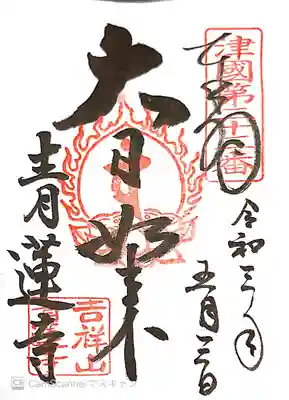 令和三年
五月三日
大日如来
青蓮寺
吉祥山
CS CamScannerでスキャン